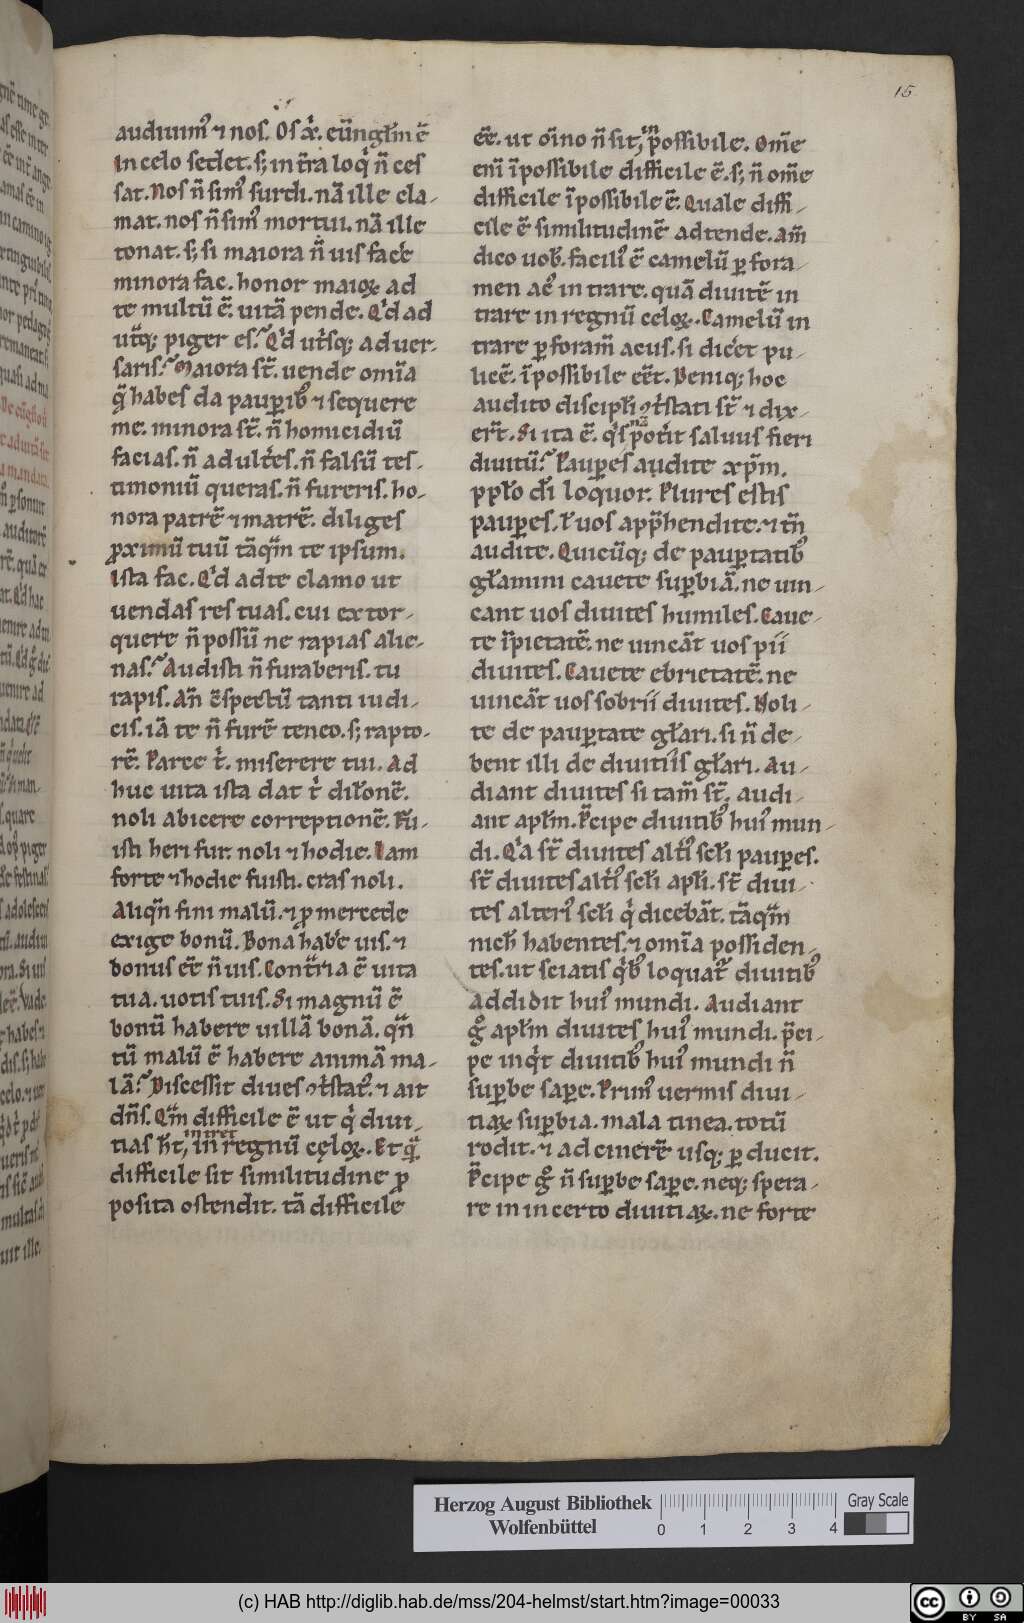 15
audiuimꝰ ⁊ nos. Os xp̄i. euↄ̄ngłm ē
In celo sedet. s; in tr̄a loqͥ n̄ ces
sat. Nos n̄ simꝰ surdi. nā ille cla-
mat. nos n̄ simꝰ mortui. nā ille
tonat. s; si maiora n̄ uis facͤe
minora fac. honor maioꝝ ad
te multū ē. uitā pende. Qͥd ad
utͣq; piger es? Qͥd utͥsq; aduer-
saris? Maiora st̄. uende om̄ia
q̄ habes da pauꝑibꝰ ⁊ sequere
me. minora st̄. n̄ homicidiū
facias. n̄ adultͤes. n̄ falsū tes-
timoniū queras. n̄ fureris. ho-
nora patrē ⁊ matrē. diliges
ꝓximū tuū tāqͣm te ipsum.
Ista fac. Qͥd ad te clamo ut
uendas res tuas. cui extor-
quere n̄ possū ne rapias alie-
nas? Audisti n̄ furaberis. tu
rapis. An̄ ꝯspectū tanti iudi-
cis. iā te n̄ furē teneo. s; rapto-
rē. Parce tͥ. miserere tui. Ad
huc uita ista dat tͥ dilōnē.
noli abicere correptionē. Fu-
isti heri fur. noli ⁊ hodie. Iam
forte ⁊ hodie fuisti. cras noli.
Aliqn̄ fini malū. ⁊ ꝓ mercede
exige bonū. Bona habͤe uis. ⁊
bonus eē n̄ uis. Contͣria ē uita
tua. uotis tuis. Si magnū ē
bonū habere uillā bonā. qn̄
tū malū ē habere animā ma-
lā? Discessit diues ꝯtͥstatꝰ. ⁊ ait
dn̄s. Qͣm difficile ē ut qͥ diui-
tias hn̄t, intret in regnū cęloꝝ. Et qͣ
difficile sit similitudine ꝓ
posita ostendit. tā difficile
eē. ut om̄ino n̄ sit, inpossibile. Om̄e
eni īpossibile difficile ē. s; n̄ om̄e
difficile īpossibile ē. Quale diffi-
cile ē similitudinē adtende. Am̄
dico uob̄. faciliꝰ ē camelū ꝑ fora-
men acꝰ intrare. quā diuitē in
trare in regnū celoꝝ. Camelū in
trare ꝑ foram̄ acus. si dicͤet pu-
licē. īpossibile eēt. Deniq; hoc
audito discipłi ꝯtͥstati st̄ ⁊ dix-
ert̄. Si ita ē. qͥsnā potͥit saluus fieri
diuitū? Pauꝑes audite xp̄m.
ppło dī loquor. Plures estis
pauꝑes. ł uos app̄hendite. ⁊ tn̄
audite. Quicūq; de pauꝑtatibꝰ
głamini cauete suꝑbiā. ne uin-
cant uos diuites humiles. Caue-
te īpietatē. ne uincāt uos pii
diuites. Cauete ebrietatē. ne
uincāt uos sobrii diuites. Noli-
te de pauꝑtate głari. si n̄ de-
bent illi de diuitiis głari. Au-
diant diuites si tam̄ st̄. audi-
ant apłm. P̄cipe diuitibꝰ huiꝰ mun-
di. Qͥa st̄ diuites altͥꝰ scłi pauꝑes.
st̄ diuites altͥꝰ scłi apłi. st̄ diui-
tes alteriꝰ scłi qͥ dicebāt. tāqͣm
nichͥ habentes. ⁊ om̄ia possiden-
tes. ut sciatis qͥbꝰ loquatᷣ diuitibꝰ
addidit huiꝰ mundi. Audiant
gͦ apłm diuites huiꝰ mundi. p̄ci-
pe inqͥt diuitibꝰ huiꝰ mundi n̄
suꝑbe saꝑe. Primꝰ uermis diui-
tiaꝝ suꝑbia. mala tinea. totū
rodit. ⁊ ad cinerē usq; ꝑducit.
P̄cipe gͦ n̄ suꝑbe saꝑe. neq; spera-
re in incerto diuitiaꝝ. ne forte
Herzog August Bibliothek
Wolfenbüttel
0 1 2 3 4
Gray Scale
(c) HAB http://diglib.hab.de/mss/204-helmst/start.htm?image=00033
cc BY SA